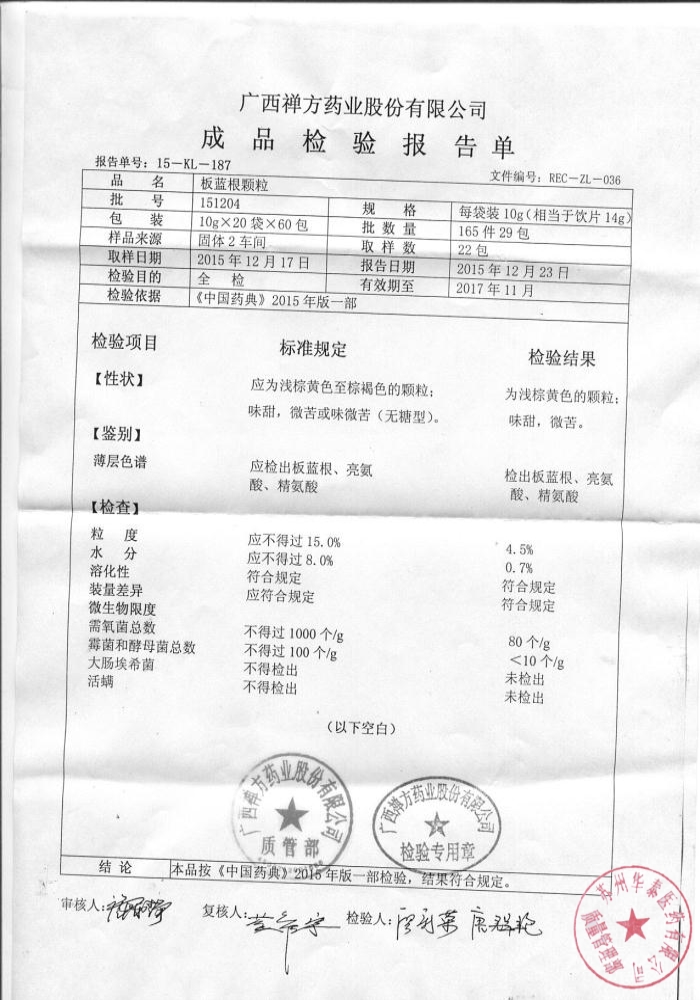 广西禅方药业股份有限公司
成品检验报告单
报告单号：15-KL-187 文件编号：REC-ZL-036
品 名 板蓝根颗粒
批 号 151204 规 格 每袋装10g（相当于饮片14g）
包 装 10g×20袋×60包 批 数 量 165件29包
样品来源 固体2车间 取 样 数 22包
取样日期 2015年12月17日 报告日期 2015年12月23日
检验目的 全 检 有效期至 2017年11月
检验依据 《中国药典》2015年版一部
检验项目 标准规定 检验结果
【性状】 应为浅棕黄色至棕褐色的颗粒； 为浅棕黄色的颗粒；
味甜，微苦或味微苦（无糖型）。 味甜，微苦。
【鉴别】
薄层色谱 应检出板蓝根、亮氨 检出板蓝根、亮氨
酸、精氨酸 酸、精氨酸
【检查】
粒 度 应不得过15.0% 4.5%
水 分 应不得过8.0% 0.7%
溶化性 符合规定 符合规定
装量差异 应符合规定 符合规定
微生物限度
需氧菌总数 不得过1000个/g 80个/g
霉菌和酵母菌总数 不得过100个/g ＜10个/g
大肠埃希菌 不得检出 未检出
活螨 不得检出 未检出
（以下空白）
广西禅方药业股份有限公司
质管部
广西禅方药业股份有限公司
检验专用章
结 论 本品按《中国药典》2015年版一部检验，结果符合规定。
审核人： 复核人： 检验人：
苏州华泰医药有限公司
质量管理部